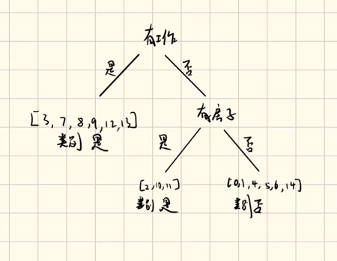 有工作
是 否
[3, 7, 8, 9, 12, 13]
类别 是
有房子
是 否
[2, 10, 11]
类别 是
[0, 1, 4, 5, 6, 14]
类别 否